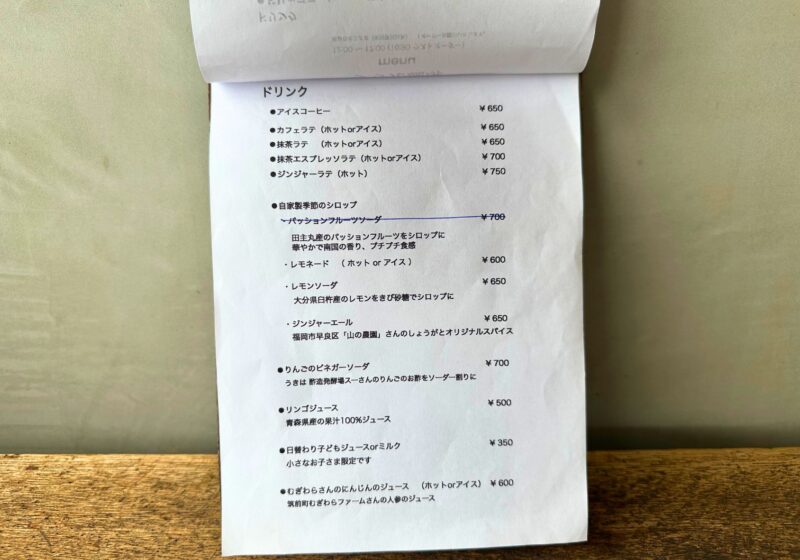 menu
ドリンク
●アイスコーヒー ¥650
●カフェラテ（ホットorアイス） ¥650
●抹茶ラテ （ホットorアイス） ¥650
●抹茶エスプレッソラテ（ホットorアイス） ¥700
●ジンジャーラテ（ホット） ¥750
●自家製季節のシロップ
・パッションフルーツソーダ ¥700
田主丸産のパッションフルーツをシロップに
華やかで南国の香り、プチプチ食感
・レモネード （ホット or アイス） ¥600
・レモンソーダ ¥650
大分県臼杵産のレモンをきび砂糖でシロップに
・ジンジャーエール ¥650
福岡市早良区「山の農園」さんのしょうがとオリジナルスパイス
●りんごのビネガーソーダ ¥700
うきは 酢造発酵場スーさんのりんごのお酢をソーダー割りに
●リンゴジュース ¥500
青森県産の果汁100%ジュース
●日替わり子どもジュースorミルク ¥350
小さなお子さま限定です
●むぎわらさんのにんじんのジュース （ホットorアイス） ¥600
筑前町むぎわらファームさんの人参のジュース